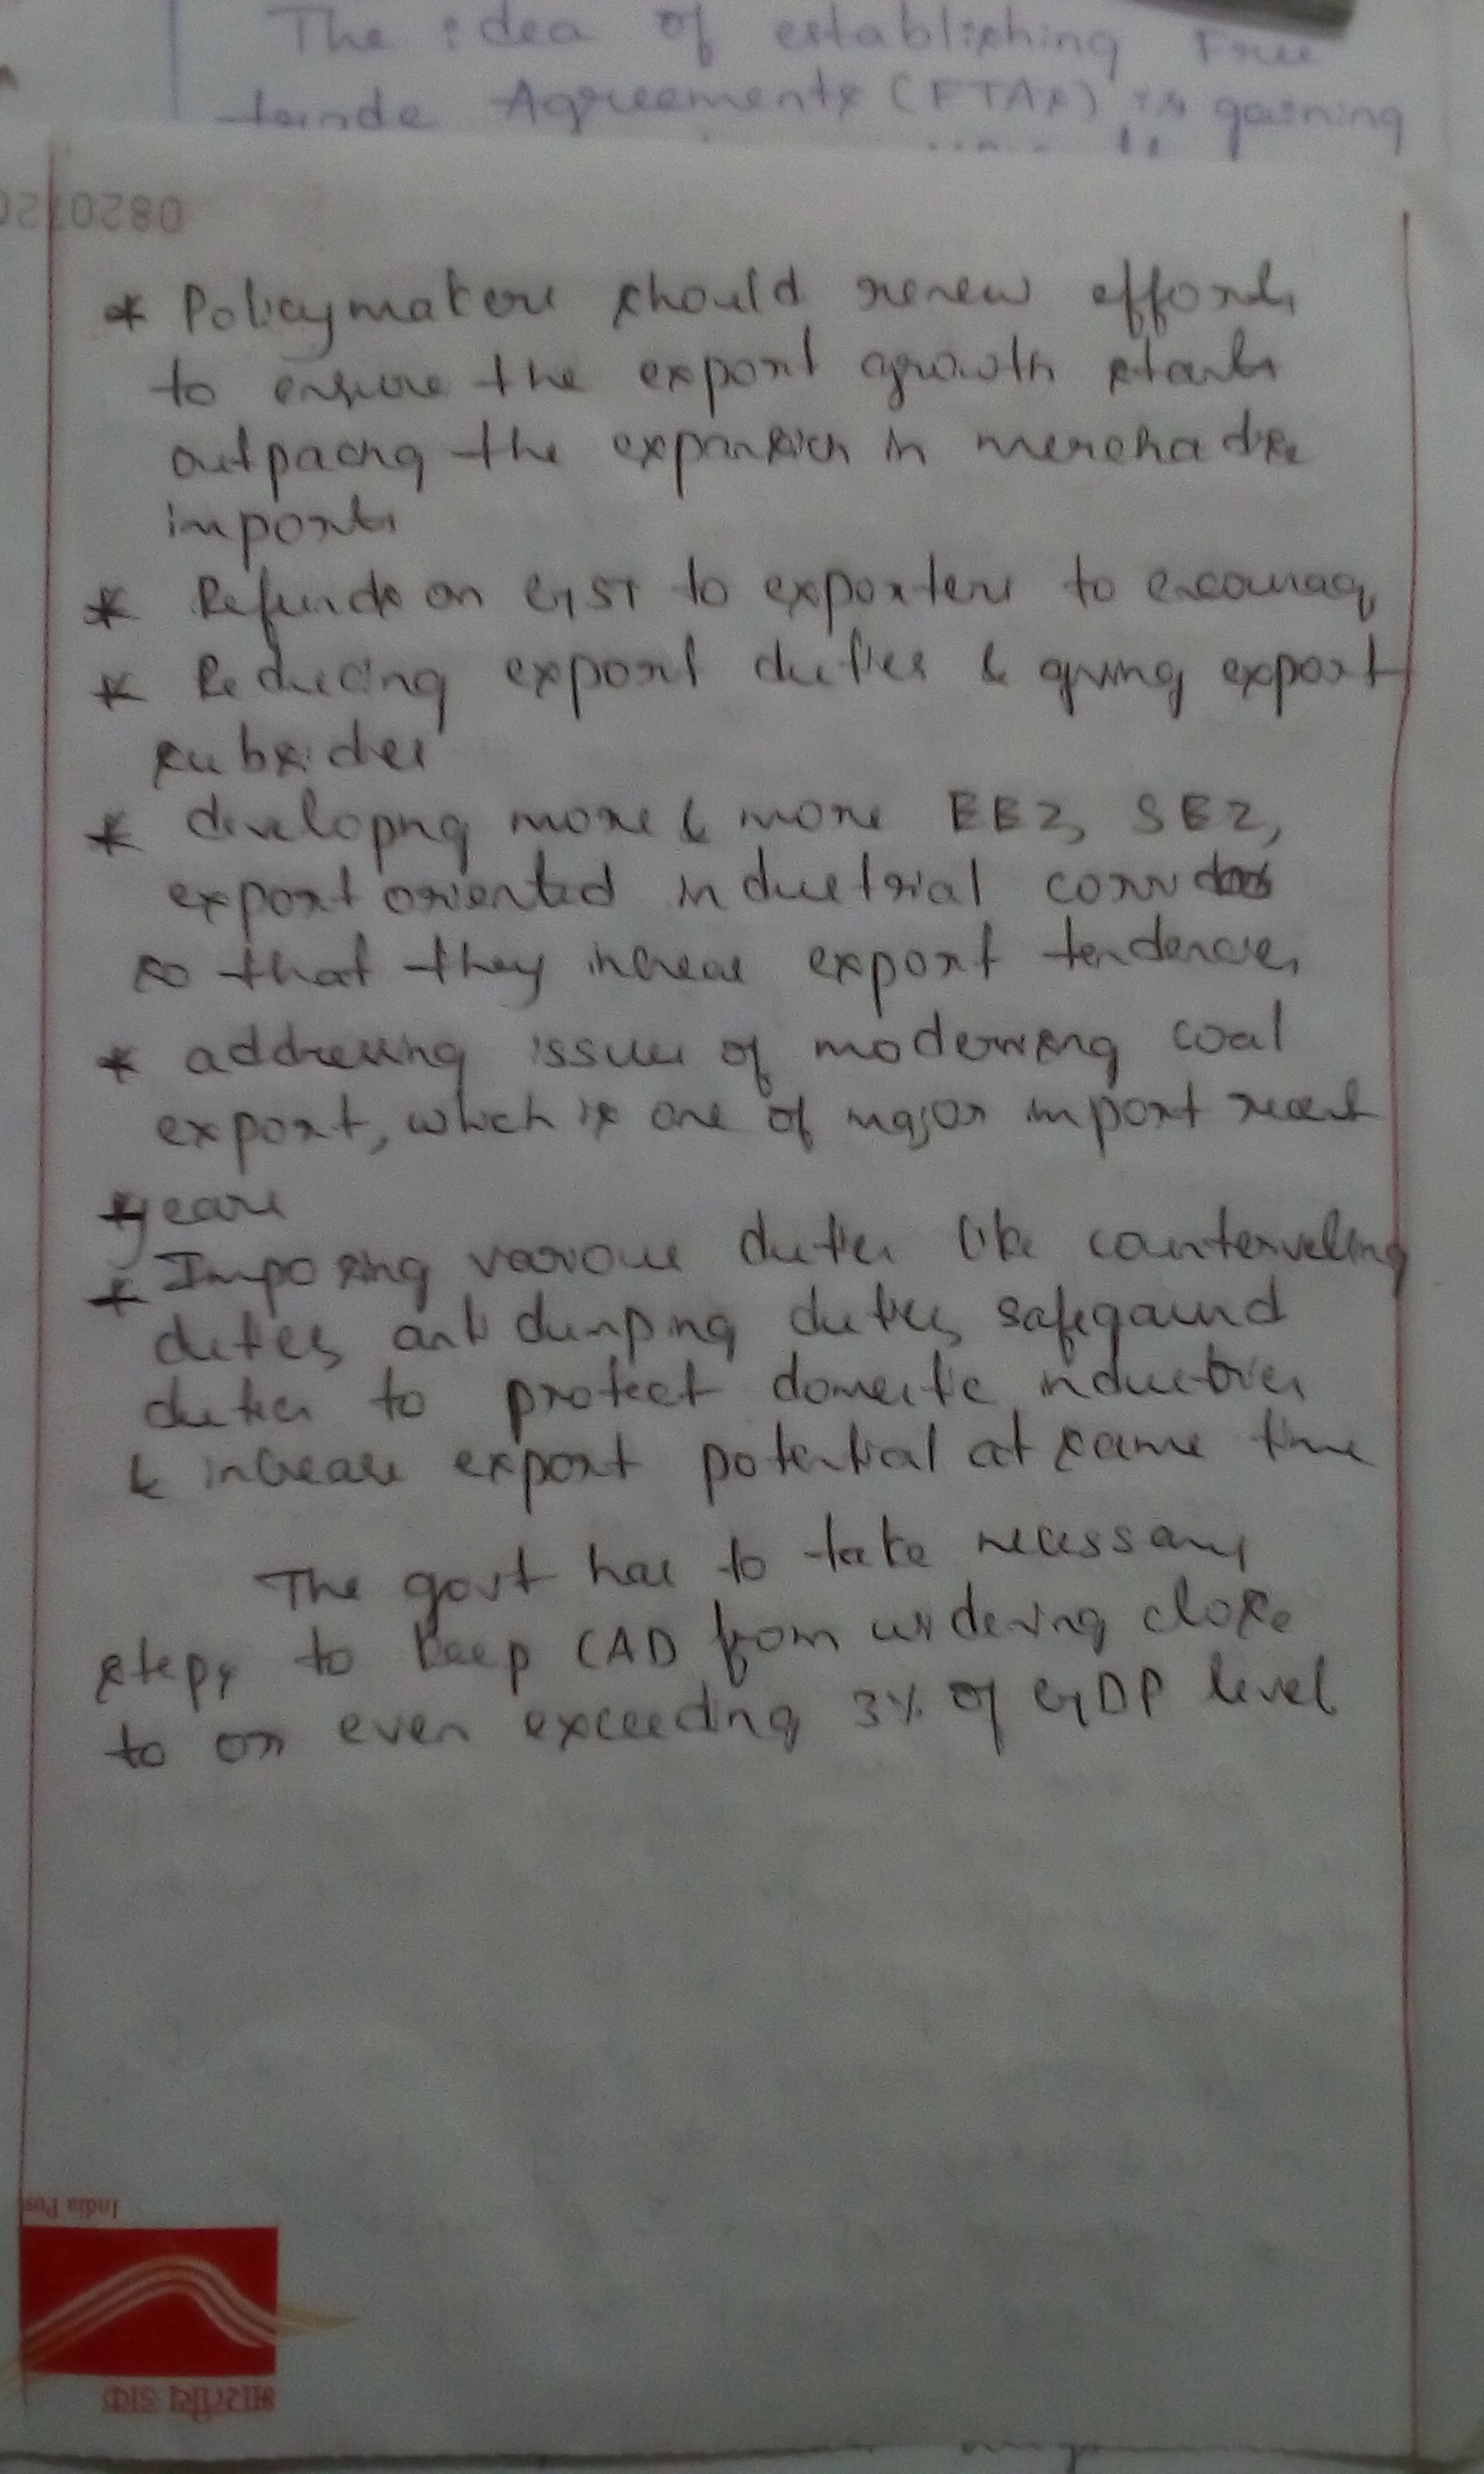 The idea of establishing Free
trade Agreements (FTAs) is gaining
082072
* Policymakers should renew efforts
to ensure the export growth starts
outpacing the expansion in merchadise
imports
* Refunds on GST to exporters to encourag
* Reducing export duties & giving export
subsidies
* developing more & more EEZ, SEZ,
export oriented industrial corridors
so that they increase export tendencies
* addressing issues of modernising coal
export, which is one of major import recent
years
* Imposing various duties like counterveling
duties, anti dumping duties, safegaurd
duties to protect domestic industries
& increase export potential at same time
The govt has to take necessary
steps to keep CAD from widening close
to or even exceeding 3% of GDP level
India Pos
भारतीय डाक